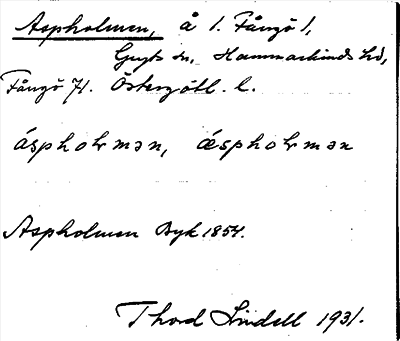 Aspholmen, å 1. Fångö 1,
Gryts sn, Hammarkinds hd,
Fångö 71. Östergötl. l.
áspholmən, áspholmən
Aspholmen Byk 1854.
Thord Lindell 1931.